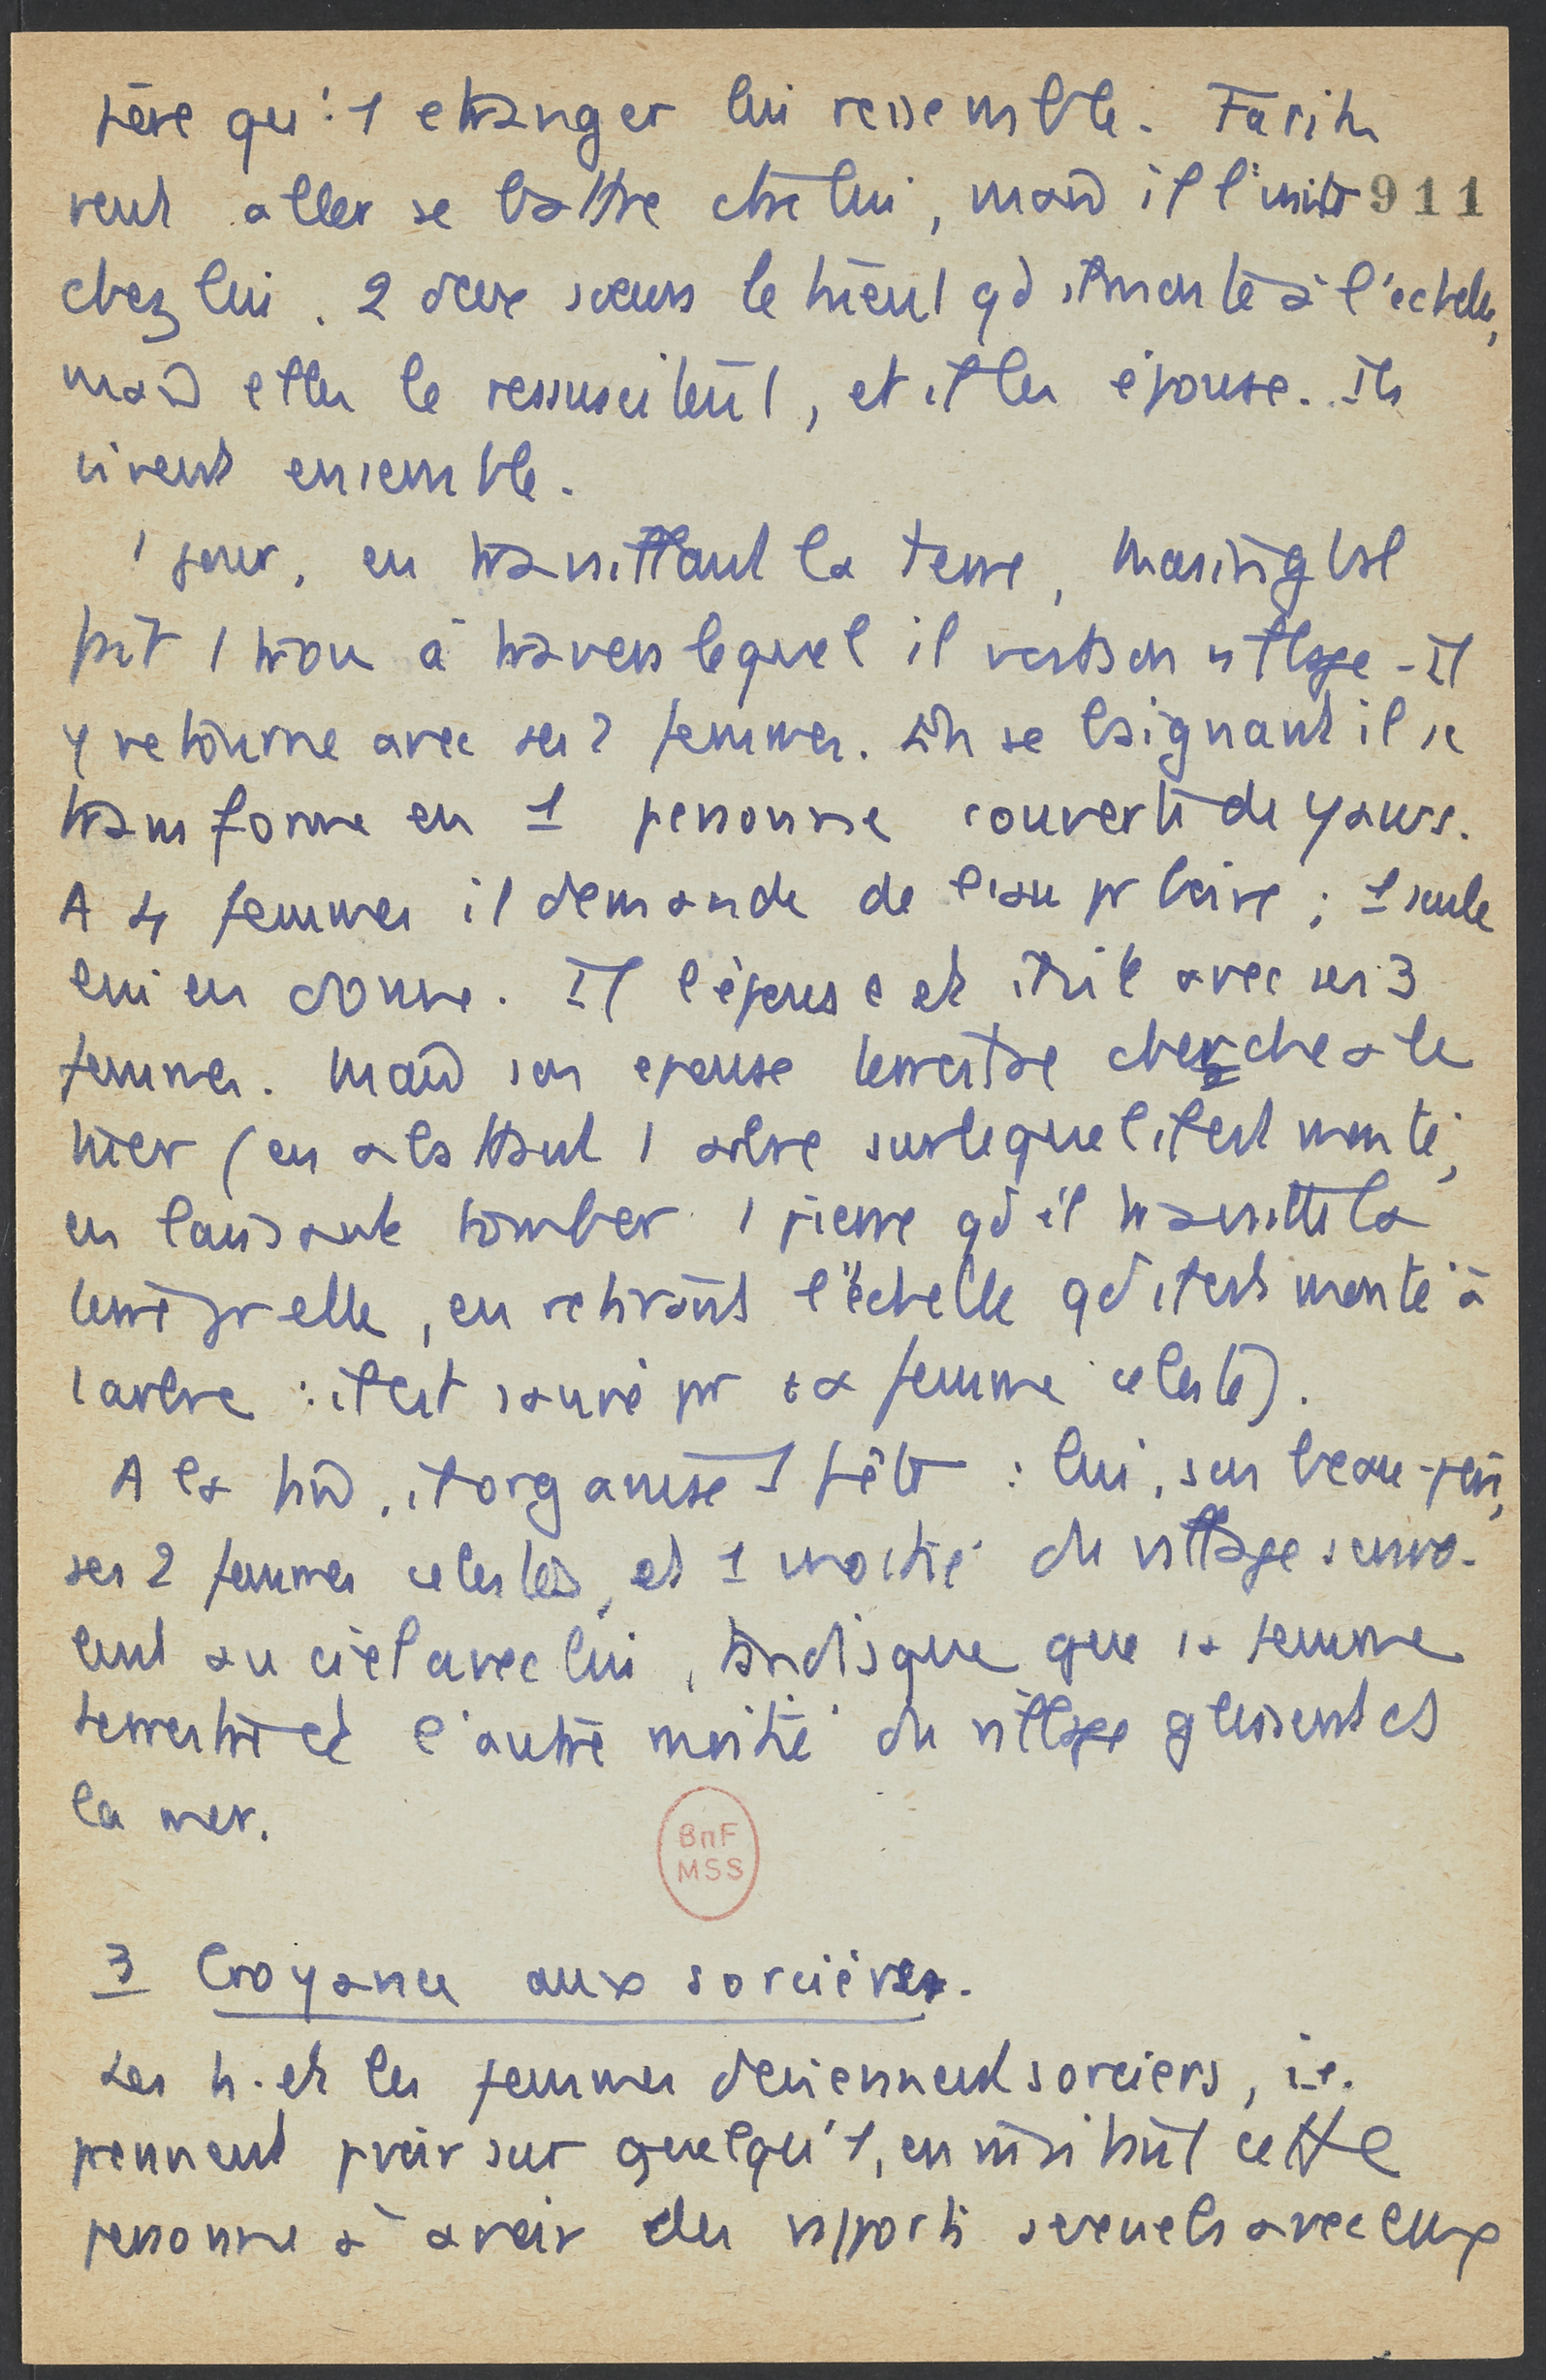 père qu'1 etranger lui ressemble. Farih
veut aller se battre ctre lui, mais il l'invite 911
chez lui. 2 deux soeurs le tuent qd il monte à l'echelle,
mais elles le ressuscitent, et il les épouse. Ils
vivent ensemble.
1 jour, en travaillant la terre,
fait 1 trou à travers lequel il voit son village - Il
y retourne avec ses 2 femmes. En se baignant il se
transforme en 1 personne couverte de yaws.
A 4 femmes il demande de l'eau pr boire ; 1 seule
lui en donne. Il l'épouse et vit avec ses 3
femmes. Mais son epouse terrestre cherche à le
tuer (en abattant 1 arbre sur lequel il est monté,
en laissant tomber 1 pierre qd il travaille la
terre pr elle, en retirant l'échelle qd il est monté à
l'arbre : il est sauvé pr sa femme celeste).
A la fin, il organise 1 fête : lui, son beau-père,
ses 2 femmes celestes, et 1 moitié du village s'envo-
lent au ciel avec lui, tandisque que sa femme
terrestre et l'autre moitié du village glissent ds
la mer.
BnF
MSS
3 Croyance aux sorcières.
Les h. et les femmes deviennent sorciers, i.e.
prennent pvoir sur quelqu'1, en invitant cette
personne à avoir des rapports sexuels avec eux